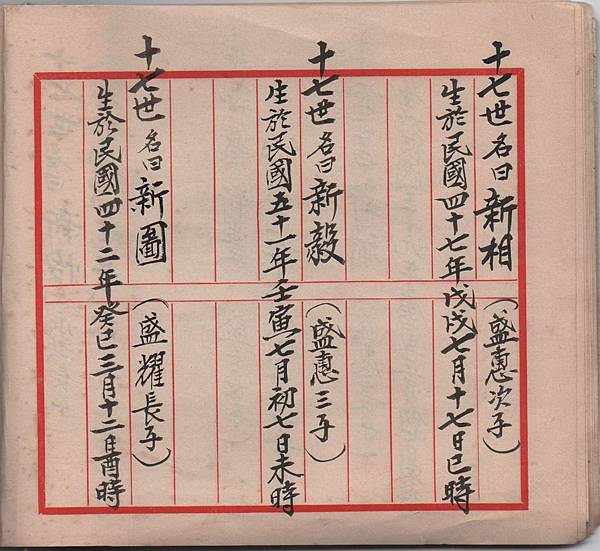 十七世名曰新相(盛惠次子)
生於民國四十七年戊戌七月十七日巳時
十七世名曰新毅(盛惠三子)
生於民國五十一年壬寅七月初七日未時
十七世名曰新圖(盛耀長子)
生於民國四十二年癸巳三月十二日酉時